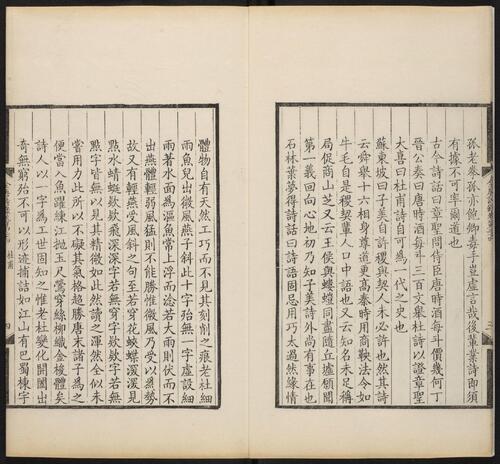 孫老參孫亦飽卿毒手豈虛言哉後輩業詩即須
有據不可率爾道也
古今詩話曰章聖問侍臣唐時酒每斗價幾何丁
晉公奏曰唐時酒每斗三百文舉杜詩以證章聖
大喜曰杜甫詩自可為一代之史也
蘇東坡曰子美自許稷與契人未必許也然其詩
云舜舉十六相身尊道更高秦時用商鞅法令如
牛毛自是稷契輩人口中語也又云知名未足稱
局促商山芝又云王侯與螻蟻同盡隨丘墟願聞
第一義回向心地初乃知子美詩外尚有事在也
石林葉夢得詩話曰詩語固忌用巧太過然緣情
體物自有天然工巧而不見其刻削之痕老杜細
雨魚兒出微風燕子斜此十字殆無一字虛設細
雨著水面為漚魚常上浮而淰若大雨則伏而不
出燕體輕弱風猛則不能勝惟微風乃受以為勢
故又有輕燕受風斜之句至若穿花蛺蝶深深見
點水蜻蜓款款飛深深字若無穿字款款字若無
點字皆無以見其精微如此然讀之渾然全似未
嘗用力此所以不礙其氣格超勝唐末諸子為之
便當入魚躍練江拋玉尺鶯穿絲柳織金梭體矣
詩人以一字為工世固知之惟老杜變化開闔出
奇無窮殆不可以形迹捕詰如江山有巴蜀棟宇
杜甫
四